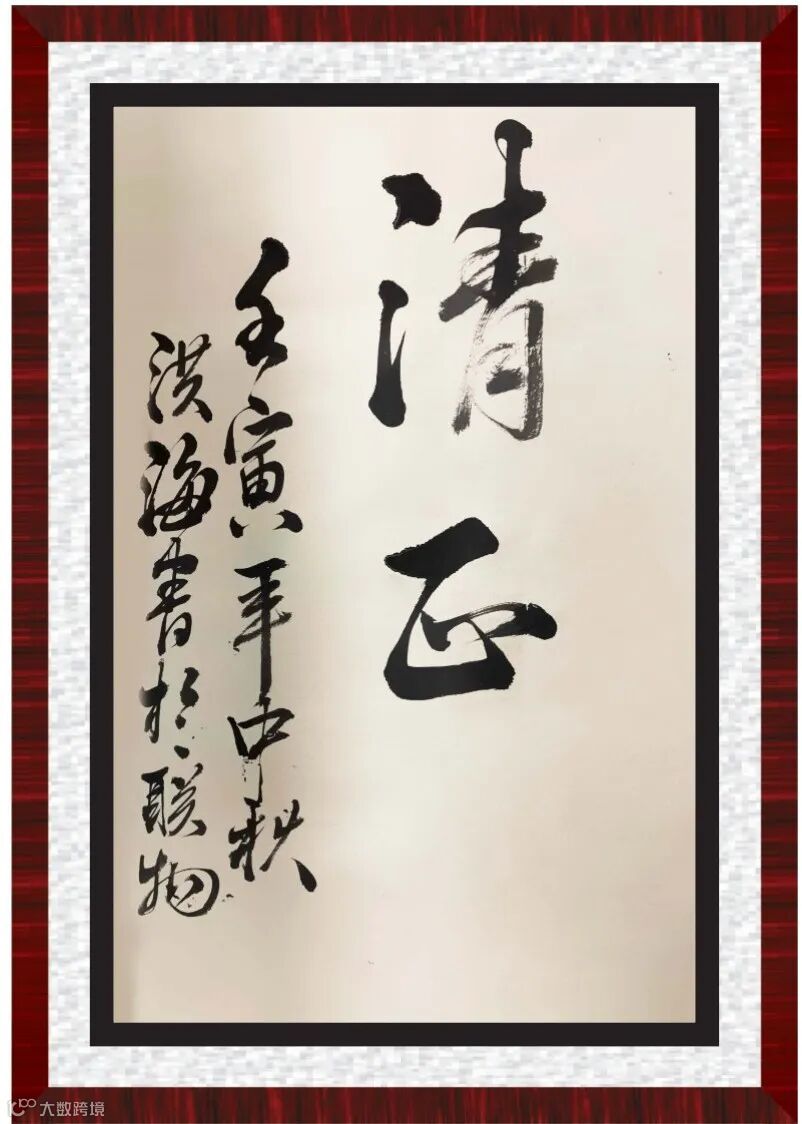 清正
壬寅年中秋
洪海書於联物
大数跨境